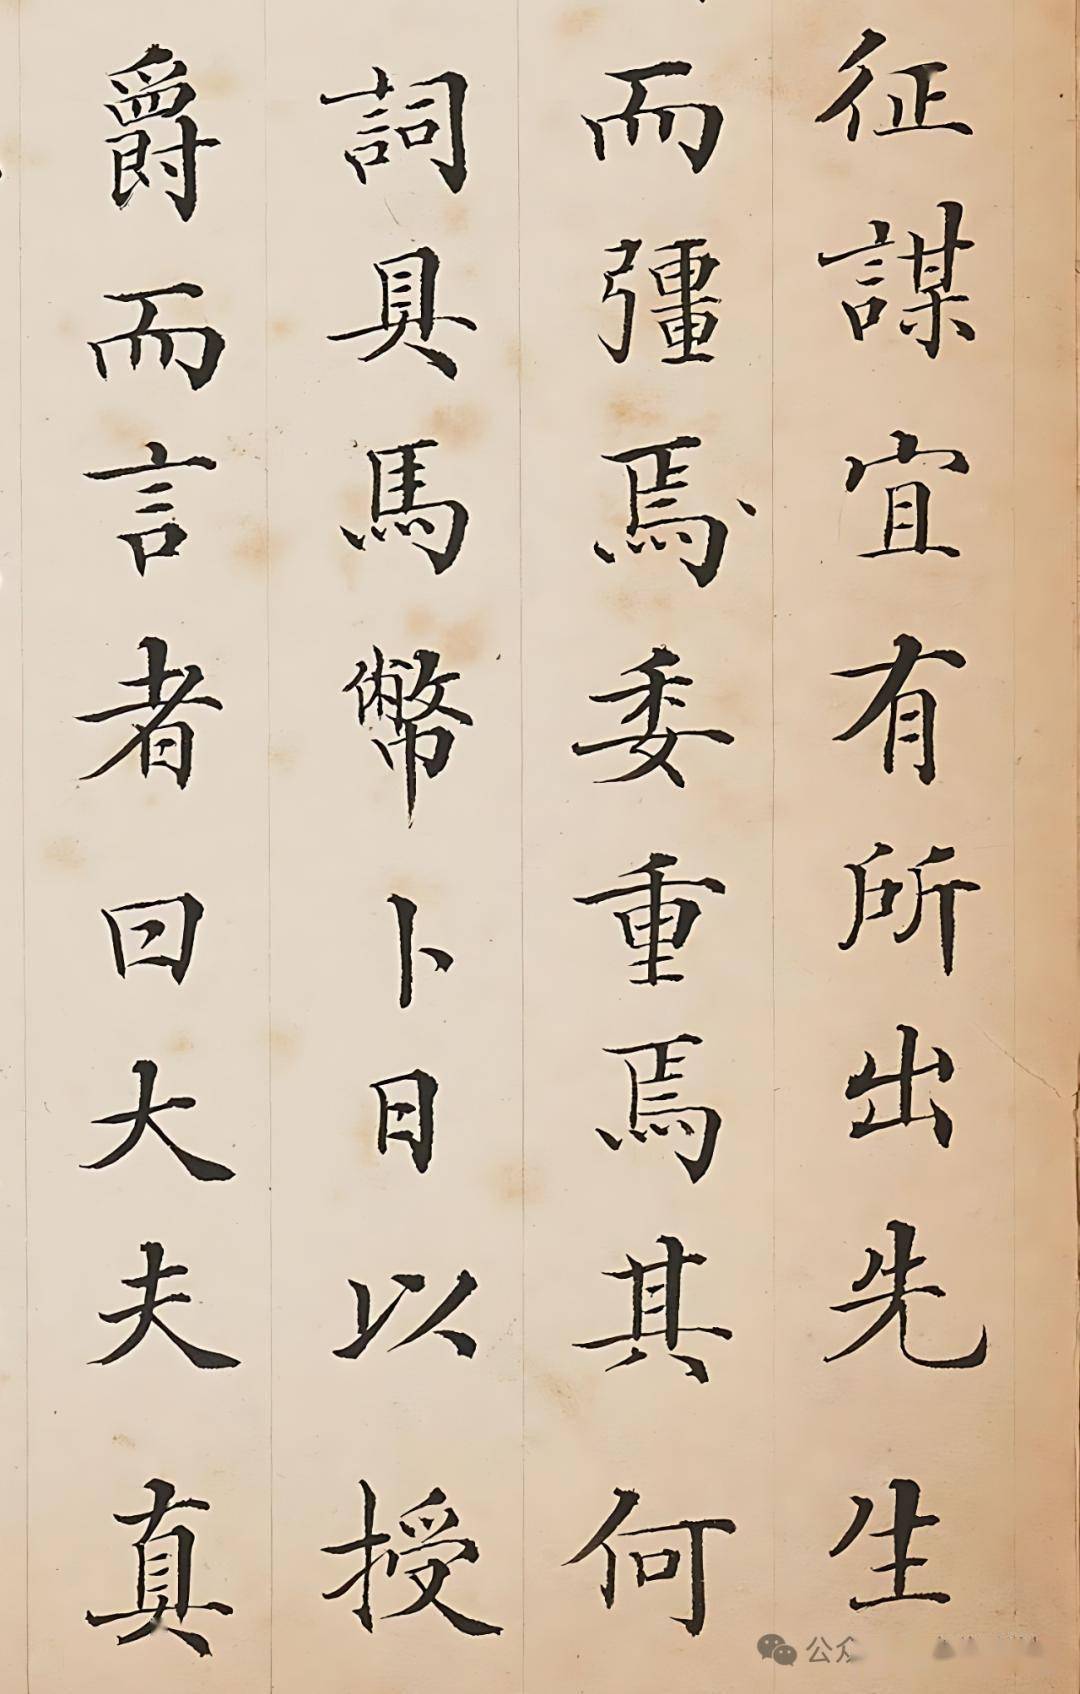 征謀宜有所出先生
而彊焉委重焉其何
詞具馬幣卜日以授
爵而言者曰大夫真
公众